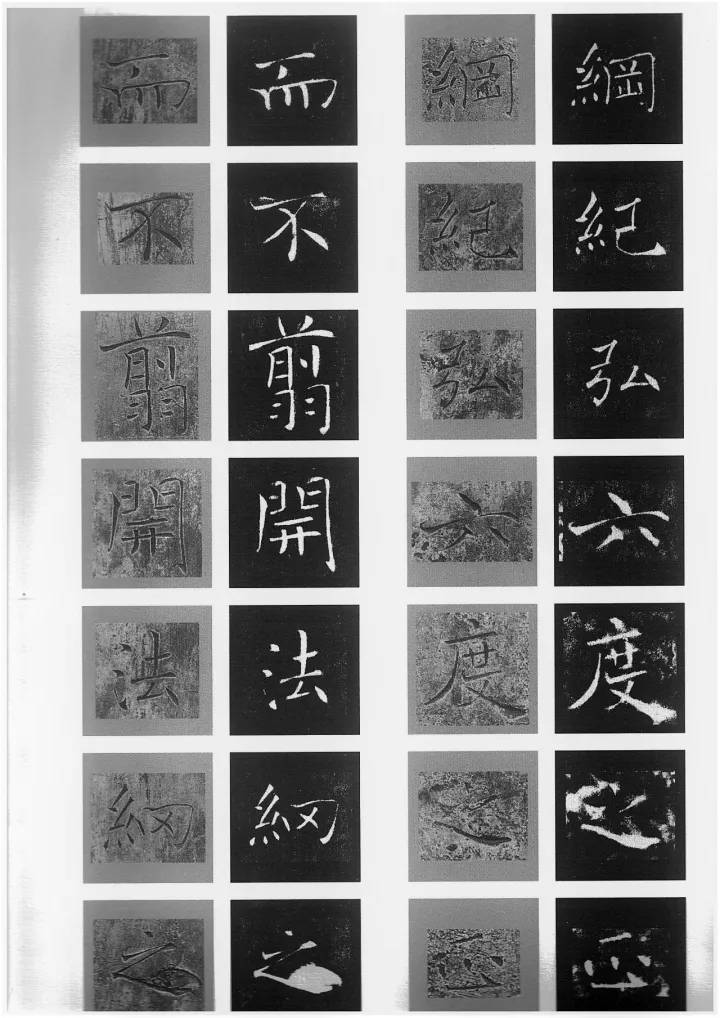 而不翦開法網之
而不翦開法網之
綱紀弘六度之正
綱紀弘六度之正